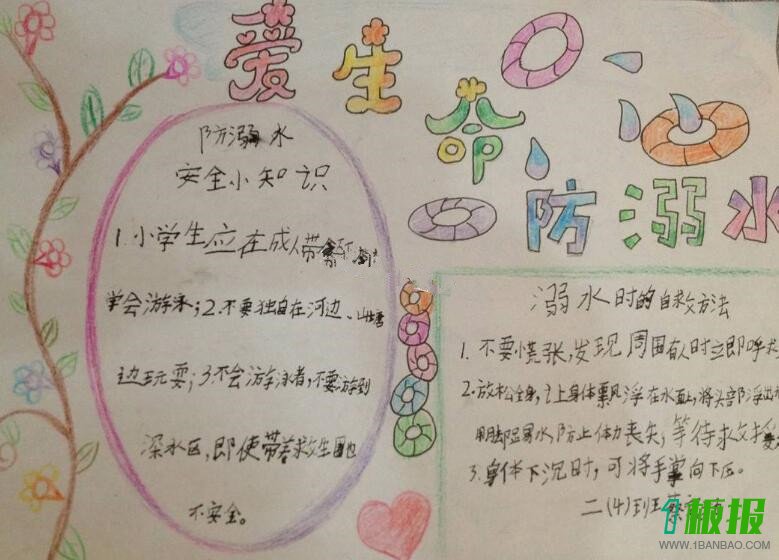 爱生
命
防溺水
防溺水
安全小知识
1.小学生应在成人带领下
学会游泳；2.不要独自在河边、山塘
边玩耍；3.不会游泳者，不要游到
深水区，即使带着救生圈也
不安全。
溺水时的自救方法
1.不要慌张，发现周围有人时立即呼求
2.放松全身，让身体飘浮在水面上，将头部浮出水
用脚踢水，防止体力丧失，等待救援
3.身体下沉时，可将手掌向下压。
二(4)班 蔡
1板报
WWW.1BANBAO.COM